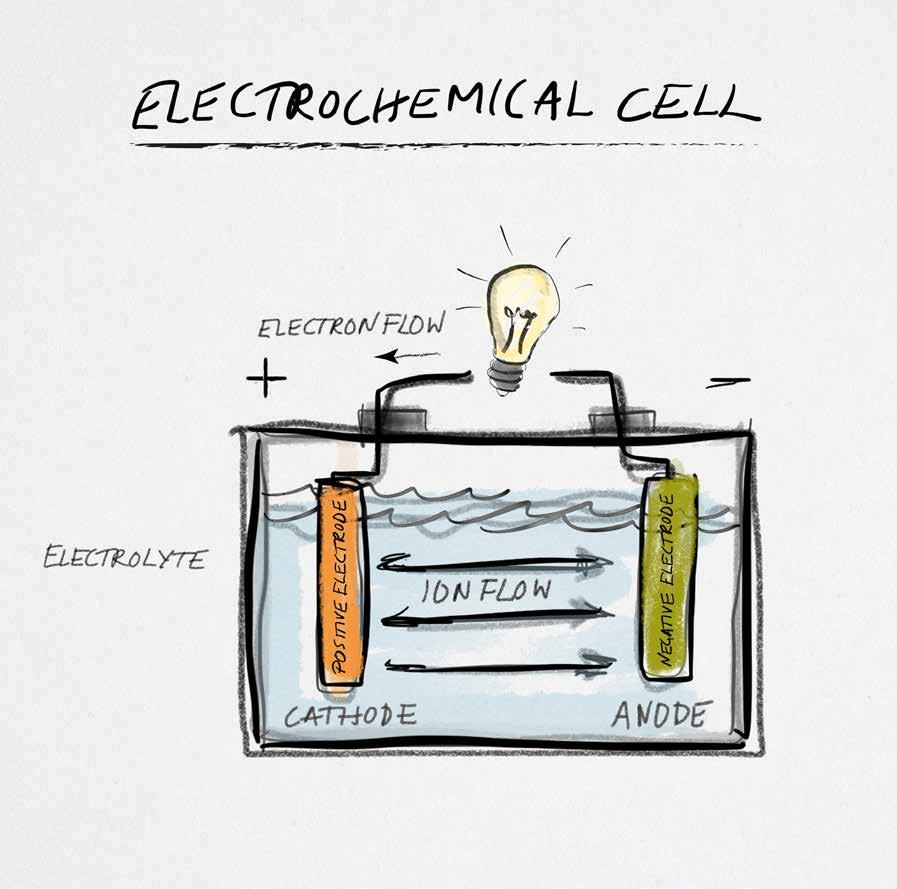 ELECTROCHEMICAL CELL
ELECTRON FLOW
+
−
ELECTROLYTE
POSITIVE ELECTRODE
ION FLOW
NEGATIVE ELECTRODE
CATHODE
ANODE